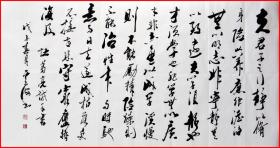 夫君子之行静以修
身俭以养德非澹泊
無以明志非寧静無
以致遠夫学须静也
才须学也非学無以广
才非志無以成学淫慢
则不能励精险躁则
不能冶性年与时驰
意与日去遂成枯落多
不接世悲守穷庐将
復何及 诸葛亮诫子书